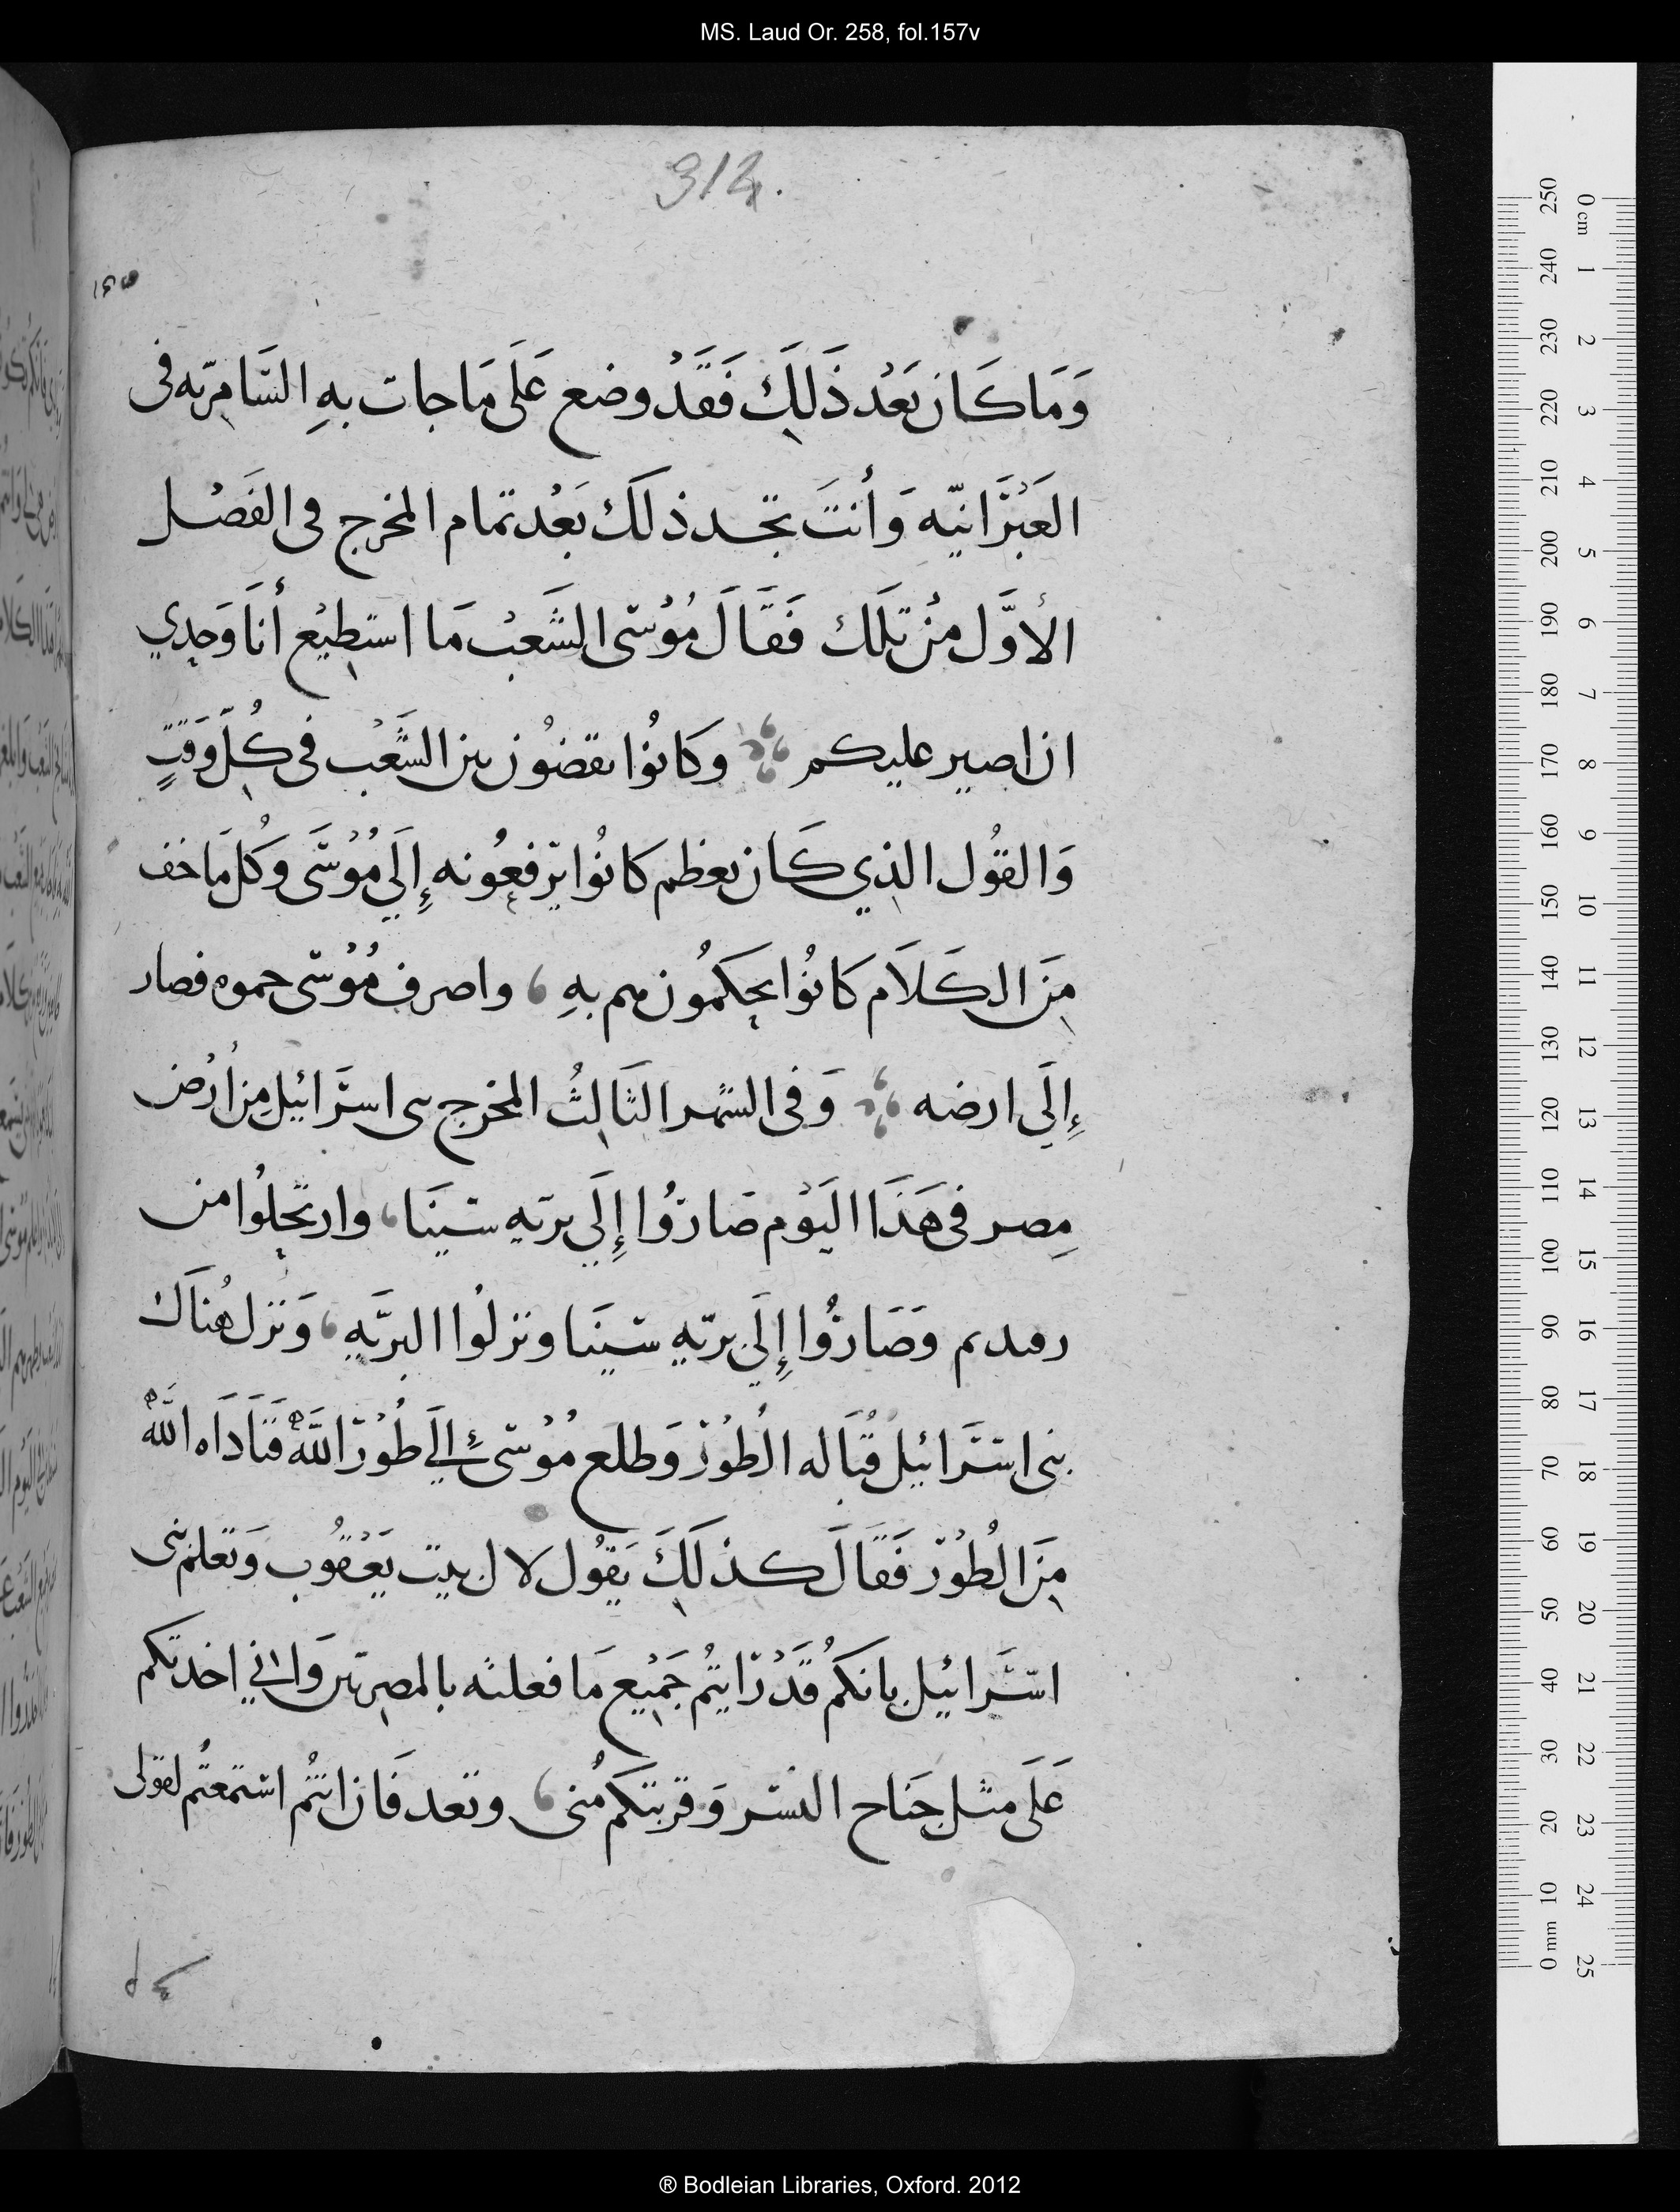 MS. Laud Or. 258, fol.157v
312.
وَمَا كَان بَعْد ذَلِكَ فَقَدْ وضع عَلَى مَا جات بِهِ السَّامِرّيه فى
العَبْرَانيّه وَأنتَ تجد ذلك بَعْد تمام المخرج فى الفَصْل
الأوَّل مِنْ تلك فَقَالَ مُوْسَى الشَّعبْ مَا استطِيْع أنَا وَحِدي
ان اصير عليكم وكانُوْا يقضُون بين الشَّعْب فى كُلِّ وَقتٍ
وَالقوُل الذِي كَان يعظم كانُوْا يَرفعُونه إِلَي مُوْسَى وكُل مَا خف
مِنَ الكَلاَم كانُوْا يحكمُون هم بهِ واصرف مُوْسَى حموه فصار
إِلَي ارضه وَفى الشهر الثَالِثُ المخرج بنى اسرَائيْل مِن أرْض
مِصر فى هَذَا اليَوْم صَارُوْا إِلَي بريّهِ سِيْنَا وارتحِلوُا من
رفيديم وَصَارُوْا إِلَي بريّهِ سِيْنَا ونزلُوا البرّيَهِ وَنَزل هُنَاك
بنى اسْرَائيْل قُبَاله الطُوْر وَطلع مُوْسَى إِلَي طُوْر اللَّهِ فَنَادَاه اللَّهُ
مِنَ الطُوْر فَقَالَ كذلِكَ يَقوُل لال بيت يَعْقوُب وَتعلمْ بنى
اسْرَائيْل بانكمُ قَدْ رَايتُم جَمِيْع مَا فعلته بالمصِريّين وَاني اخدتكم
عَلَى مثل جَنَاح النسْر وَقربتكم مُنى وبَعد فَان انتُم استمعتُم لقولى
0 cm 1 2 3 4 5 6 7 8 9 10 11 12 13 14 15 16 17 18 19 20 21 22 23 24 25
250 240 230 220 210 200 190 180 170 160 150 140 130 120 110 100 90 80 70 60 50 40 30 20 10 0 mm
® Bodleian Libraries, Oxford. 2012